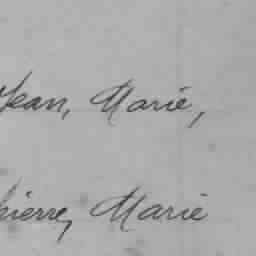 Jean, Marie,
hierre, Marie